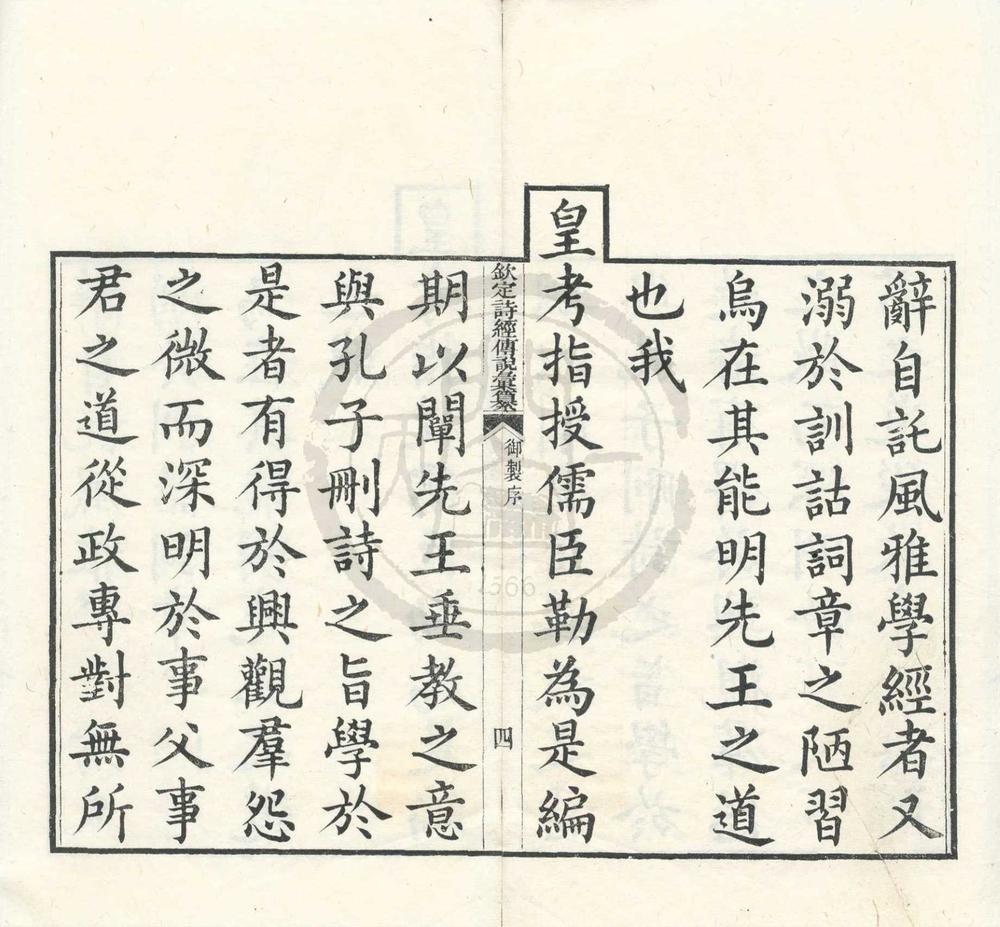 辭自託風雅學經者又
溺於訓詁詞章之陋習
烏在其能明先王之道
也我
皇考指授儒臣勒為是編
欽定詩經傳說彙纂
御製序
四
期以闡先王垂教之意
與孔子刪詩之旨學於
是者有得於興觀羣怨
之微而深明於事父事
君之道從政專對無所
1566